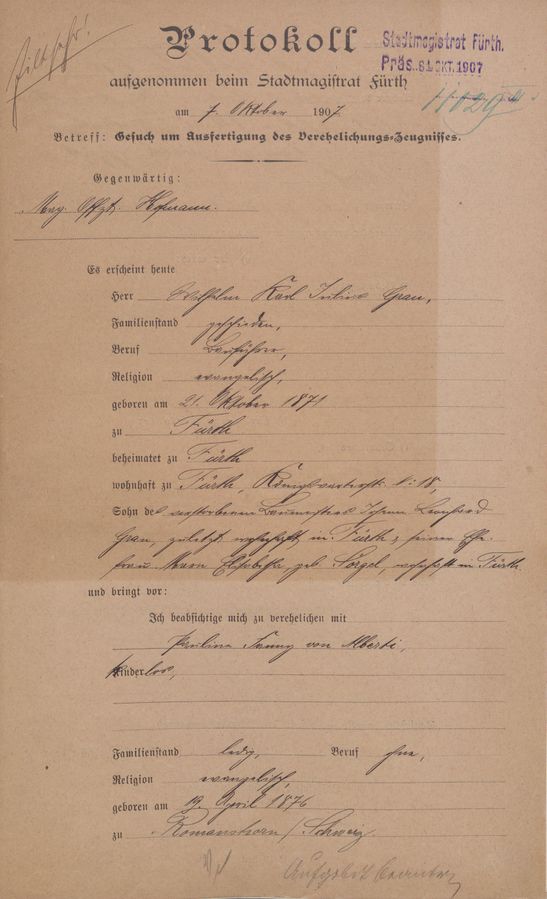 Protokoll
Stadtmagistrat Fürth.
Präs. 8. OKT. 1907
aufgenommen beim Stadtmagistrat Fürth
am 7. Oktober 1907.
Betreff: Gesuch um Ausfertigung des Verehelichungs-Zeugnisses.
Gegenwärtig:
Mag. Offzt. Hofmann.
Es erscheint heute
Herr Wilhelm Karl Julius Grau,
Familienstand geschieden,
Beruf Bauführer,
Religion evangelisch,
geboren am 21. Oktober 1871
zu Fürth
beheimatet zu Fürth
wohnhaft zu Fürth, Königswarterstr. N: 18,
Sohn des verstorbenen Baumeisters Johann Leonhard
Grau, zuletzt wohnhaft in Fürth & seiner Ehe-
frau Maria Elisabetha, geb. Sorgel, wohnhaft in Fürth.
und bringt vor:
Ich beabsichtige mich zu verehelichen mit
Paulina Fanny von Alberti,
Kinderlos,
Familienstand ledig, Beruf ohne,
Religion evangelisch,
geboren am 19. April 1876
zu Romanshorn / Schweiz.
Aufgebot